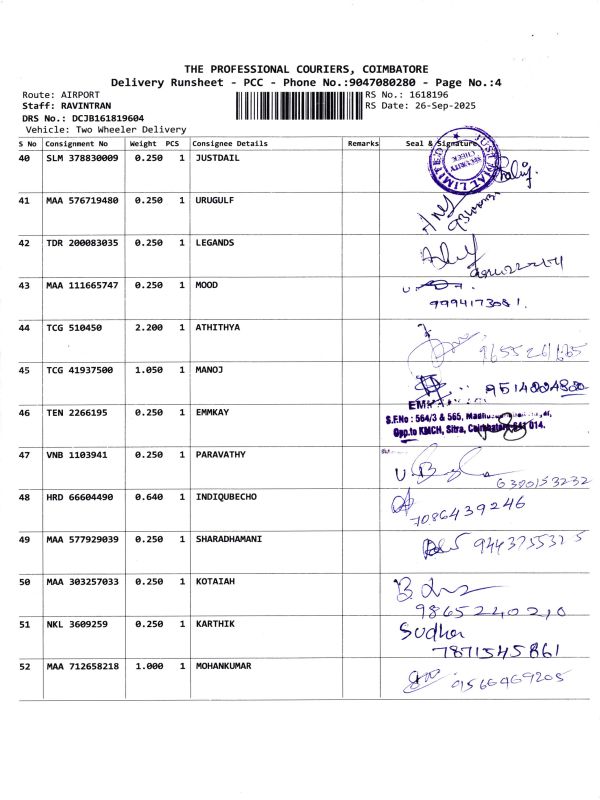 THE PROFESSIONAL COURIERS, COIMBATORE
Delivery Runsheet - PCC - Phone No.:9047080280 - Page No.:4
Route: AIRPORT
RS No.: 1618196
Staff: RAVINTRAN
RS Date: 26-Sep-2025
DRS No.: DCJB161819604
Vehicle: Two Wheeler Delivery
S No Consignment No Weight PCS Consignee Details Remarks Seal & Signature
40 SLM 378830009 0.250 1 JUSTDAIL
JUST DIAL LIMITED
SECURITY CHECK
41 MAA 576719480 0.250 1 URUGULF
42 TDR 200083035 0.250 1 LEGANDS
43 MAA 111665747 0.250 1 MOOD
9994173081.
44 TCG 510450 2.200 1 ATHITHYA
45 TCG 41937500 1.050 1 MANOJ
9514004800
46 TEN 2266195 0.250 1 EMMKAY
S.F.No : 564/3 & 565,
Opp.to KMCH, Sitra, Coimbatore-641 014.
47 VNB 1103941 0.250 1 PARAVATHY
6380153232
48 HRD 66604490 0.640 1 INDIQUBECHO
7086439246
49 MAA 577929039 0.250 1 SHARADHAMANI
50 MAA 303257033 0.250 1 KOTAIAH
9865240210
51 NKL 3609259 0.250 1 KARTHIK
Sudha
7871545861
52 MAA 712658218 1.000 1 MOHANKUMAR
9566469205